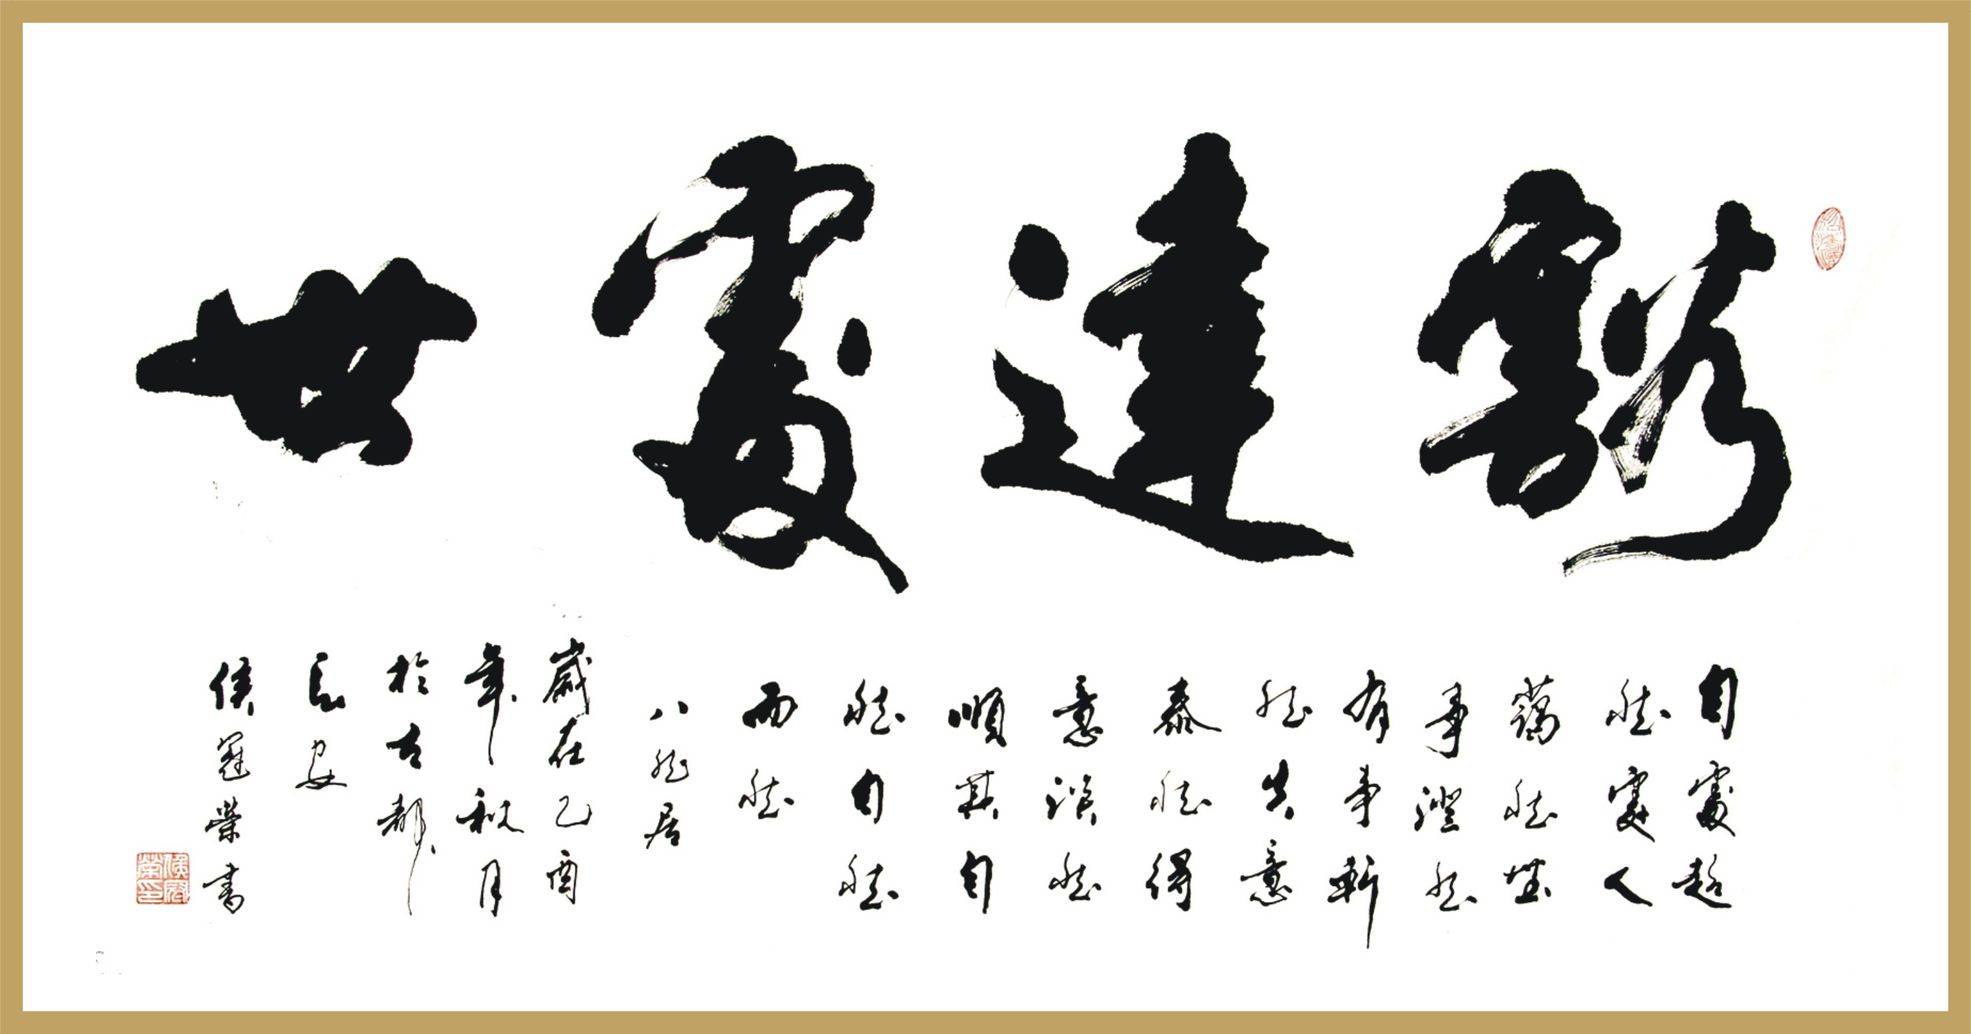 豁達處世
自處超
然處人
藹然無
事澄然
有事斬
然失意
泰然得
意淡然
順其自
然自然
而然
八然居
歲在乙酉
年秋月
於古都
長安
侯冠榮書
侯冠榮印